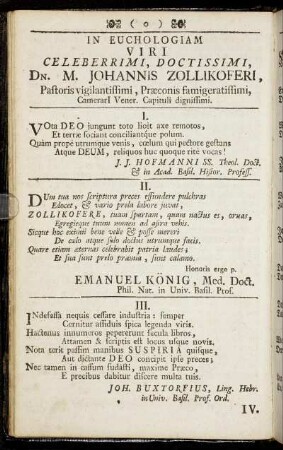 ( o )
IN EUCHOLOGIAM
VIRI
CELEBERRIMI, DOCTISSIMI,
DN. M. JOHANNIS ZOLLIKOFERI,
Pastoris vigilantissimi, Præconis famigeratissimi,
Camerari Vener. Capituli dignissimi.
I.
VOta DEO jungunt toto licèt axe remotos,
Et terræ sociant conciliantque polum.
Quàm propè utrumque venis, cœlum qui pectore gestans
Atque DEUM, reliquos huc quoque ritè vocas!
J. J. HOFMANNI SS. Theol. Doct.
& in Acad. Basil. Histor. Profess.
II.
DUm tua nos scriptura preces effundere pulchras
Edocet, & vario prela labore juvat,
ZOLLIKOFERE, tuam spartam, quam nactus es, ornas,
Egregiisque tuum nomen ad astra vehis.
Sicque hac eximii bene velle & posse mereri
De cælo atque solo doctus utrumque facis.
Quare etiam æternas celebrabit patria laudes;
Et sua sunt prelo præmia, sunt calamo.
Honoris ergo p.
EMANUEL KÖNIG, Med. Doct.
Phil. Nat. in Univ. Basil. Prof.
III.
INdefessa nequis cessare industria: semper
Cernitur assiduis spica legenda viris.
Hactenus innumeros pepererunt secula libros,
Attamen & scriptis est locus usque novis.
Nota terit passim manibus SUSPIRIA quisque,
Aut dictante DEO concipit ipse preces;
Nec tamen in cassum sudasti, maxime Præco,
E precibus dabitur discere multa tuis.
JOH. BUXTORFIUS, Ling. Hebr.
in Univ. Basil. Prof. Ord.
IV.